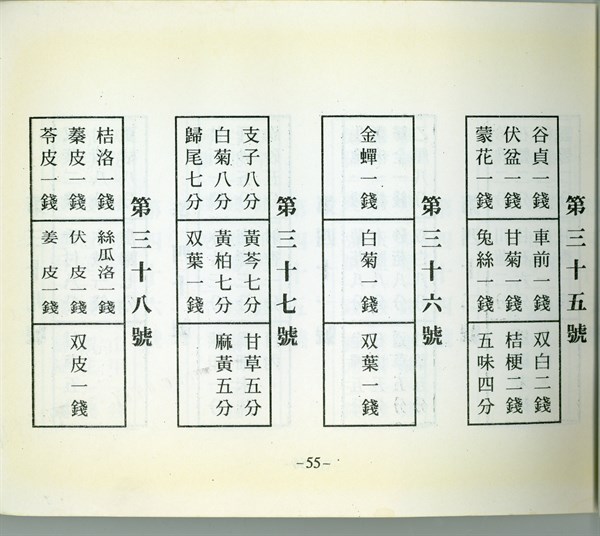 第三十五號
谷貞一錢 車前一錢 双白二錢
伏盆一錢 甘菊一錢 桔梗二錢
蒙花一錢 兔絲一錢 五味四分
第三十六號
金蟬一錢 白菊一錢 双葉一錢
第三十七號
支子八分 黃芩七分 甘草五分
白菊八分 黃柏七分 麻黃五分
歸尾七分 双葉一錢
第三十八號
桔洛一錢 絲瓜洛一錢 双皮一錢
蓁皮一錢 伏皮一錢
苓皮一錢 姜皮一錢
-55-